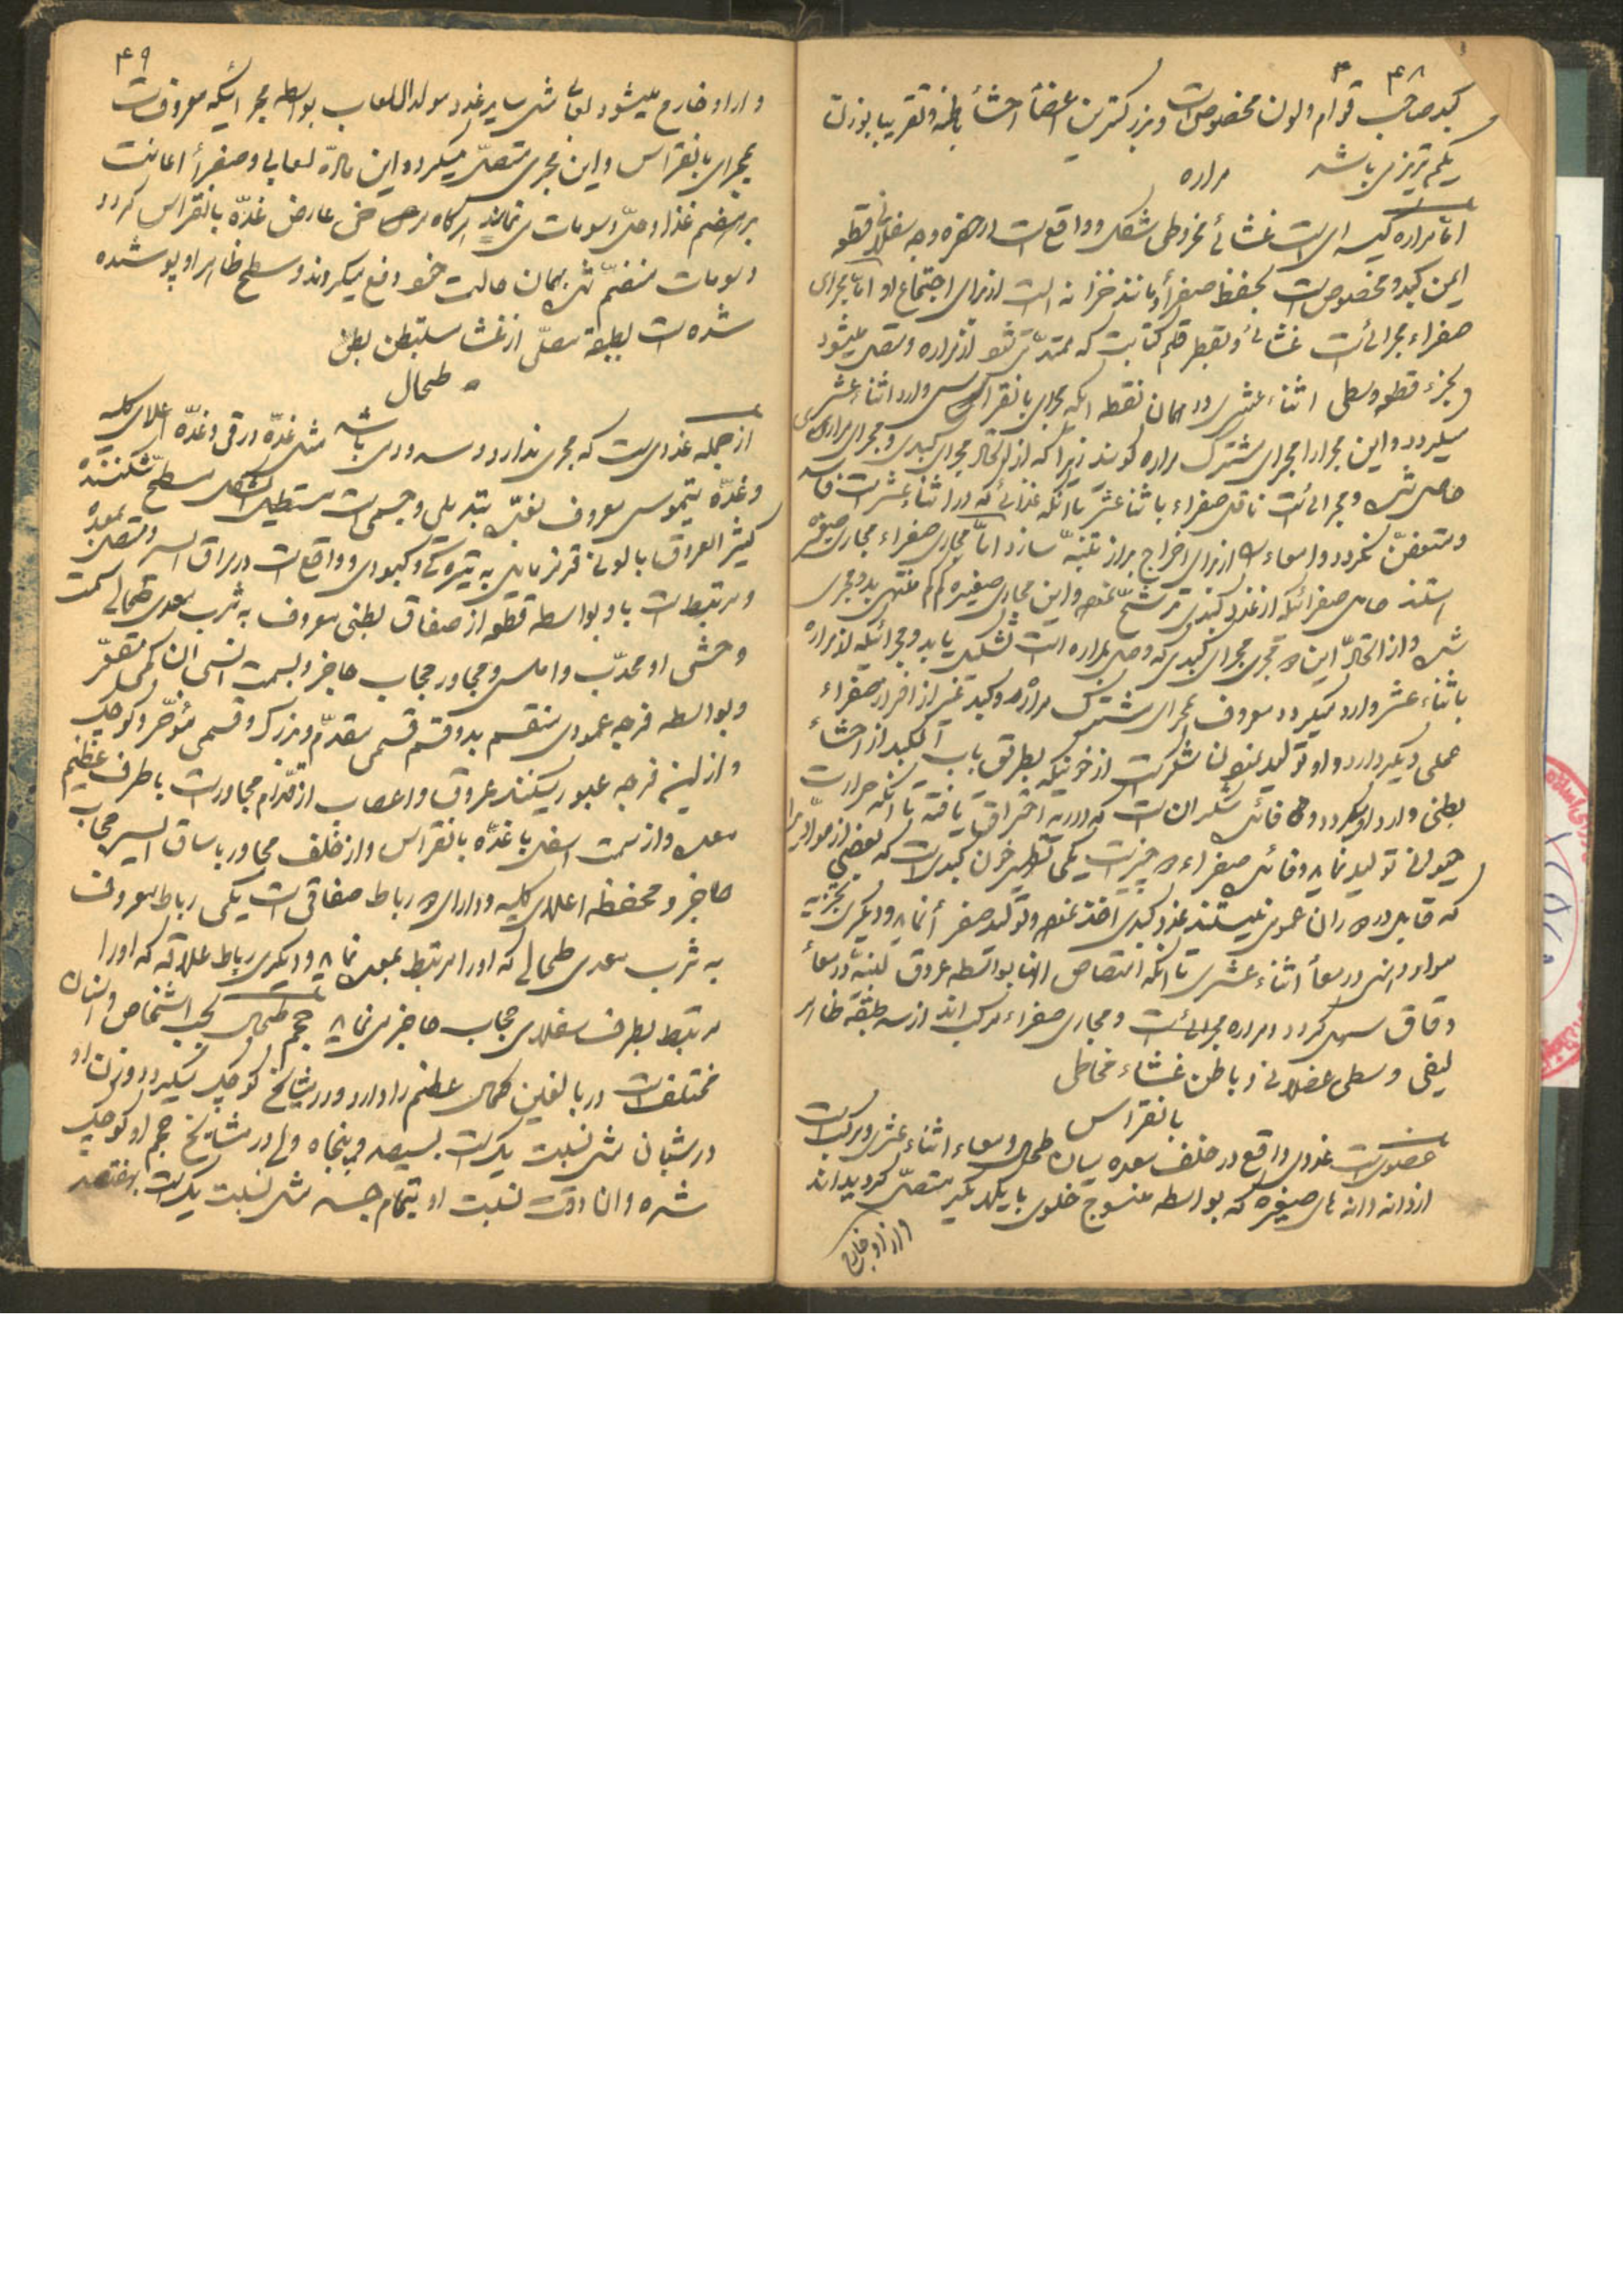 ۴۸
کبد صاحب قوام والون مخصوص است وبزرکترین اعضأ احشأ باطنه وتقریبا بوزن
یکم تبریزی باشد
مراره
اما مراره کیسه ای است غشائے مخروطی شکل وواقع است در حفره وجه سفلانی قطعه
ایمن کبد ومخصوص است بحفظ صفرأ ومانند خزانه است از برای اجتماع او اما مجرای
صفراء مجرائیست غشائے وبقطر قلم کتابت که ممتد میشود از مراره ومتصل میشود
بجزء قطعه وسطی اثناء عشری در همان نقطه که مجرای بانقراس وارد اثناء عشری
میکردد واین مجرارا مجرای مشترک مراره کویند زیرا که از اتحاد مجرای کبدی ومجرای مراری
حاصل شده ومجرائیست ناقل صفراء باثناء عشر تا انکه غذائے که در اثناء عشر است فاسد
ومتعفن نکردد وامعاء را از برای اخراج براز تنبه سازد اما مجاری صفراء مجاری صغیره
استند حامل صفرائیکه از غدد کبدی ترشح نموده واین مجاری صغیره کم کم منتهی بدو مجری
شده واز اتحاد این دو مجری مجرای کبدی که وصل بمراره است تشکیل یابد ومجرائیکه از مراره
باثناء عشر وارد میکردد معروف بمجرای مشترک مراره وکبد غیر از افراز صفراء
عملی دیکر دارد واو تولید نمودن شکر است از خونیکه بطریق باب الکبد از احشاء
بطنی وارد او میکردد وفائده شکر ان است که در ریه احتراق یافته تا انکه حرارت
حیوانے تولید نماید وفائده صفراء دو چیز است یکی تطهیر خون کبد است که بعضی از مواد را
که قابل دوران عمومی نیستند غدد کبدی اخذ نموده وتولید صفرأ نماید ودیکری تجزیه
مواد دهنی در معأ اثناء عشری تا انکه امتصاص انها بواسطه عروق لبنیه در معأ
دقاق سهل کردد ومراره مجرائیست ومجاری صفراء مرکب اند از سه طبقه ظاهر
لیفی وسطی عضلانے وباطن غشاء مخاطی
بانقراس
عضوی است غددی واقع در خلف معده میان طحال ومعاء اثناء عشری ومرکب است
از دانه دانه های صغیره که بواسطه منسوج خلوی بایکدیگر متصل کردیده اند
واز او خارج
۴۹
واز او خارج میشود لعابے مثل سایر غدد مولد اللعاب بواسطه مجرائیکه معروف است
بمجرای بانقراس واین مجری متصل میکردد واین ماده لعابی وصفرأ اعانت
بر هضم غذا وحل دسومات می نمایند هرکاه مرضی عارض غده بانقراس کردد
دسومات منهضم نشده بهمان حالت خود دفع میکردند وسطح ظاهر او پوشیده
شده است بطبقه مصلی از غشاء مستبطن بطن
طحال
از جمله غددی ست که مجری ندارد وسه عدد می باشد مثل غده درقی وغده اعلای کلیه
وغده تیموس معروف بغده بتدیلی وجسمی است مستطیل الشکل مسطح شکننده
کثیر العروق بالونے قرمز مایل به تیره کی وکبودی وواقع است در مراق ایسر ومتصل بمعده
ومرتبط است باو بواسطه قطعه از صفاق بطنی معروف به ثرب معدی طحالے سمت
وحشی او محدب واملس ومجاور حجاب حاجز وبسمت انسی ان کمی مقعر
وبواسطه فرجه عمودی منقسم بدو قسم قسمی مقدم وبزرک وقسمی مؤخر وکوچک
واز این فرجه عبور میکنند عروق واعصاب از قدام مجاور است باطرف عظیم
معده واز سمت اسفل باغده بانقراس واز خلف مجاور باساق ایسر حجاب
حاجز ومحفظه اعلای کلیه ودارای دو رباط صفاقی است یکی رباط معروف
به ثرب معدی طحالے که اورا مرتبط بمعده نماید ودیکری رباط علاقه که اورا
مرتبط بطرف سفلای حجاب حاجز می نماید حجم طحال بحسب اشخاص واسنان
مختلف است در بالغین کمال عظم را دارد ودر مشایخ کوچک میکردد ووزن او
در شبان مثل نسبت یک است بسیصد وپنجاه ولے در مشایخ حجم او کوچک
شده وان وقت نسبت او بتمام جسد مثل نسبت یک است بهفتصد